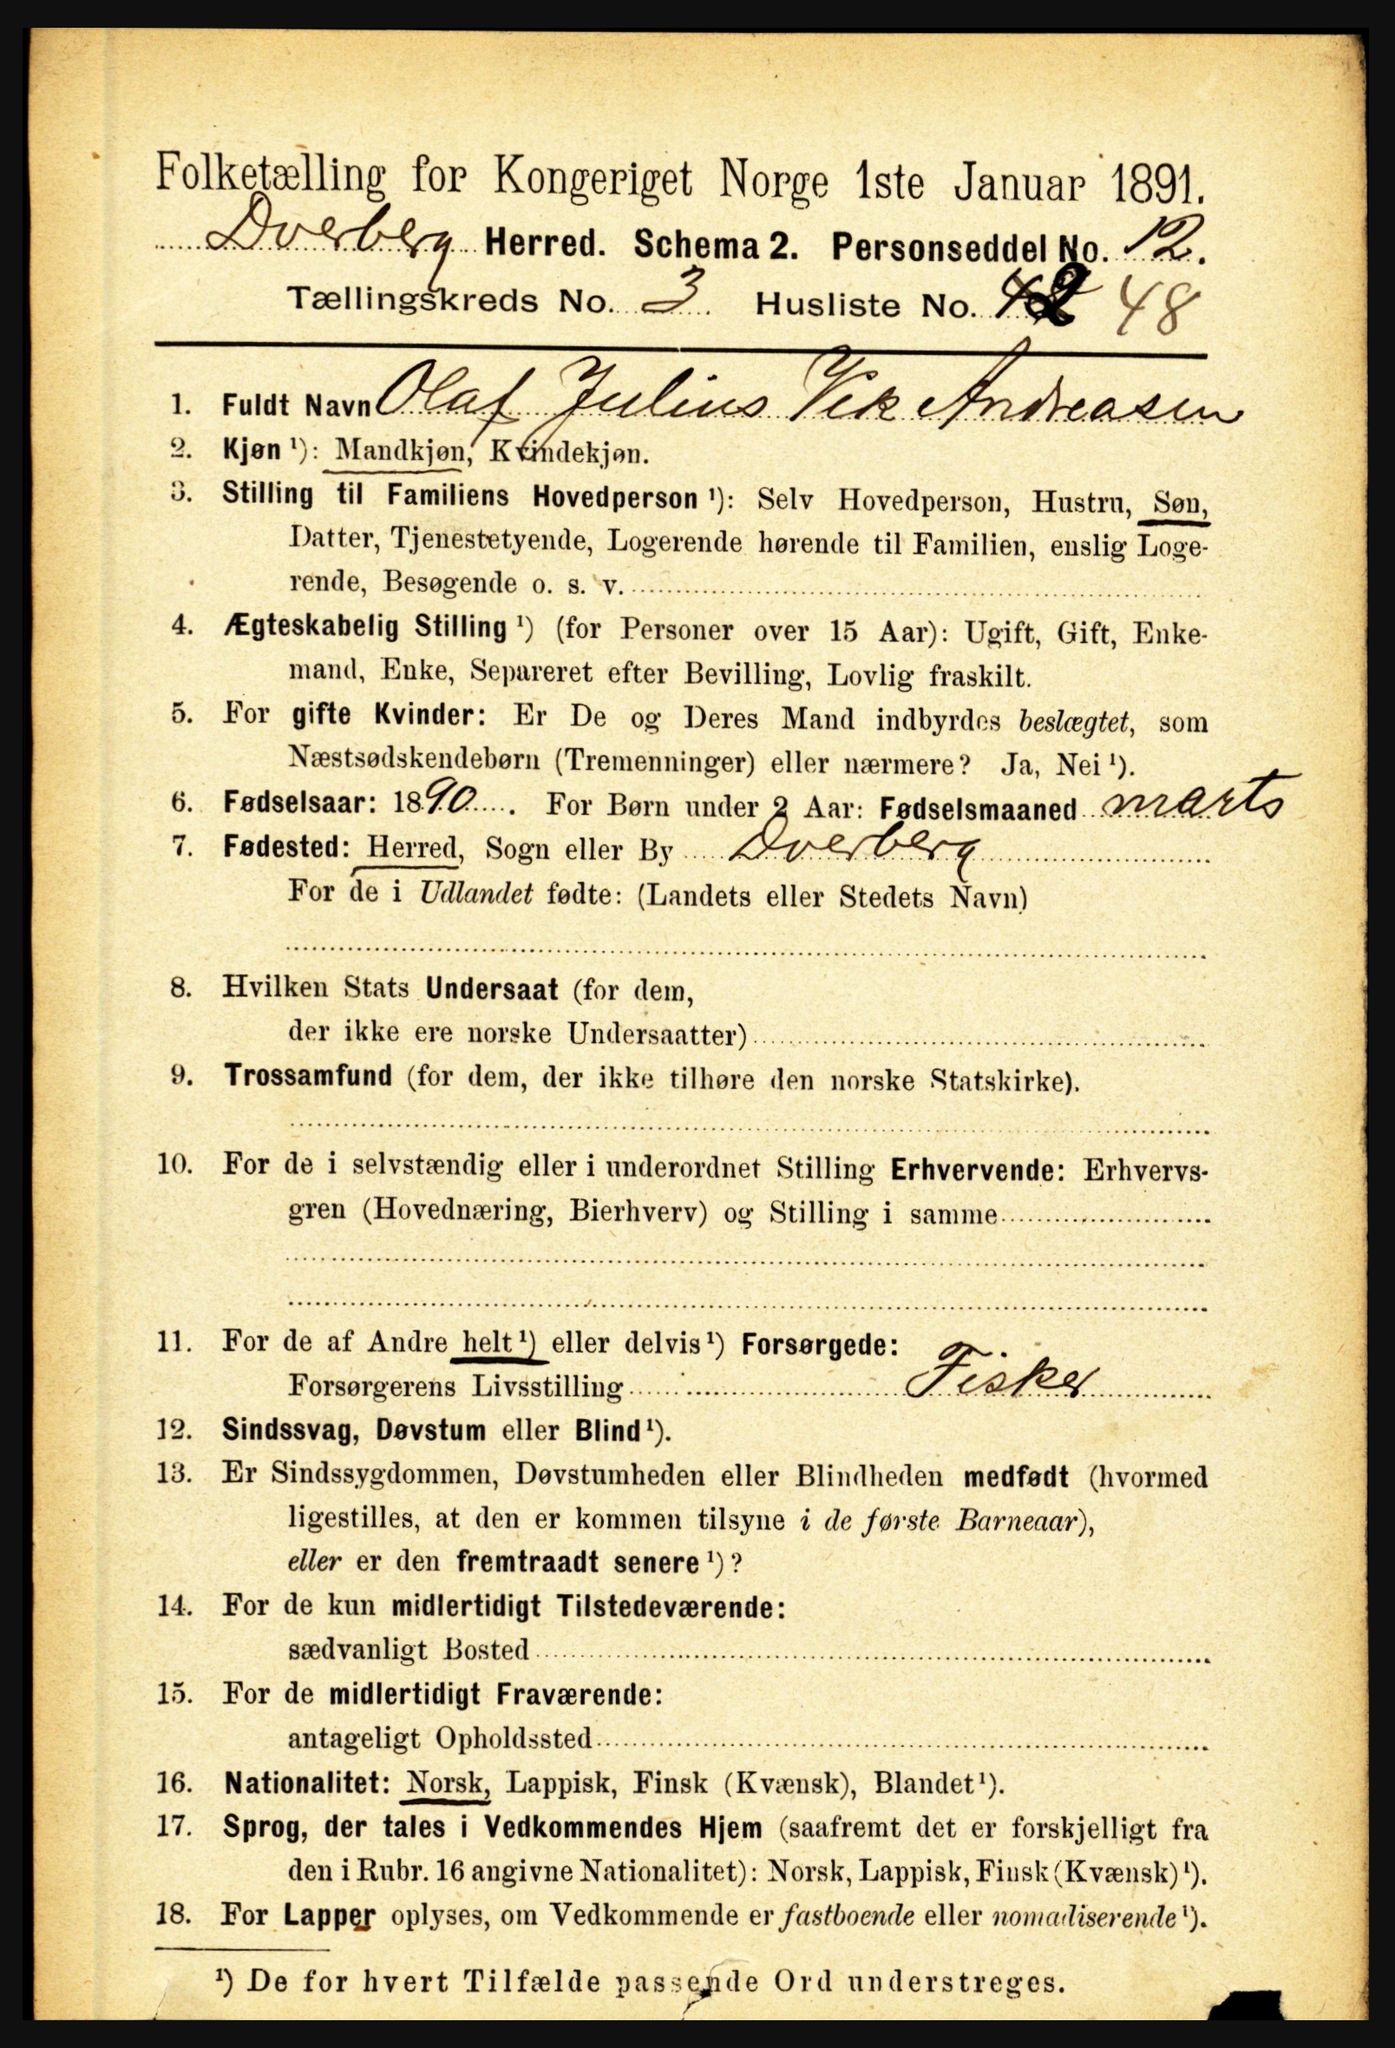 Folketælling for Kongeriget Norge 1ste Januar 1891.
Dverberg Herred. Schema 2. Personseddel No. 12.
Tællingskreds No. 3. Husliste No. 42 48
1. Fuldt Navn Olaf Julius Vik Andreasen
2. Kjøn ¹): Mandkjøn, Kvindekjøn.
3. Stilling til Familiens Hovedperson ¹): Selv Hovedperson, Hustru, Søn,
Datter, Tjenestetyende, Logerende hørende til Familien, enslig Loge-
rende, Besøgende o. s. v.
4. Ægteskabelig Stilling ¹) (for Personer over 15 Aar): Ugift, Gift, Enke-
mand, Enke, Separeret efter Bevilling, Lovlig fraskilt.
5. For gifte Kvinder: Er De og Deres Mand indbyrdes beslægtet, som
Næstsødskendebørn (Tremenninger) eller nærmere? Ja, Nei ¹).
6. Fødselsaar: 1890. For Børn under 2 Aar: Fødselsmaaned marts
7. Fødested: Herred, Sogn eller By Dverberg
For de i Udlandet fødte: (Landets eller Stedets Navn)
8. Hvilken Stats Undersaat (for dem,
der ikke ere norske Undersaatter)
9. Trossamfund (for dem, der ikke tilhøre den norske Statskirke).
10. For de i selvstændig eller i underordnet Stilling Erhvervende: Erhvervs-
gren (Hovednæring, Bierhverv) og Stilling i samme
11. For de af Andre helt ¹) eller delvis ¹) Forsørgede:
Forsørgerens Livsstilling Fisker
12. Sindssvag, Døvstum eller Blind ¹).
13. Er Sindssygdommen, Døvstumheden eller Blindheden medfødt (hvormed
ligestilles, at den er kommen tilsyne i de første Barneaar),
eller er den fremtraadt senere ¹)?
14. For de kun midlertidigt Tilstedeværende:
sædvanligt Bosted
15. For de midlertidigt Fraværende:
antageligt Opholdssted
16. Nationalitet: Norsk, Lappisk, Finsk (Kvænsk), Blandet ¹).
17. Sprog, der tales i Vedkommendes Hjem (saafremt det er forskjelligt fra
den i Rubr. 16 angivne Nationalitet): Norsk, Lappisk, Finsk (Kvænsk) ¹).
18. For Lapper oplyses, om Vedkommende er fastboende eller nomadiserende ¹).
¹) De for hvert Tilfælde passende Ord understreges.